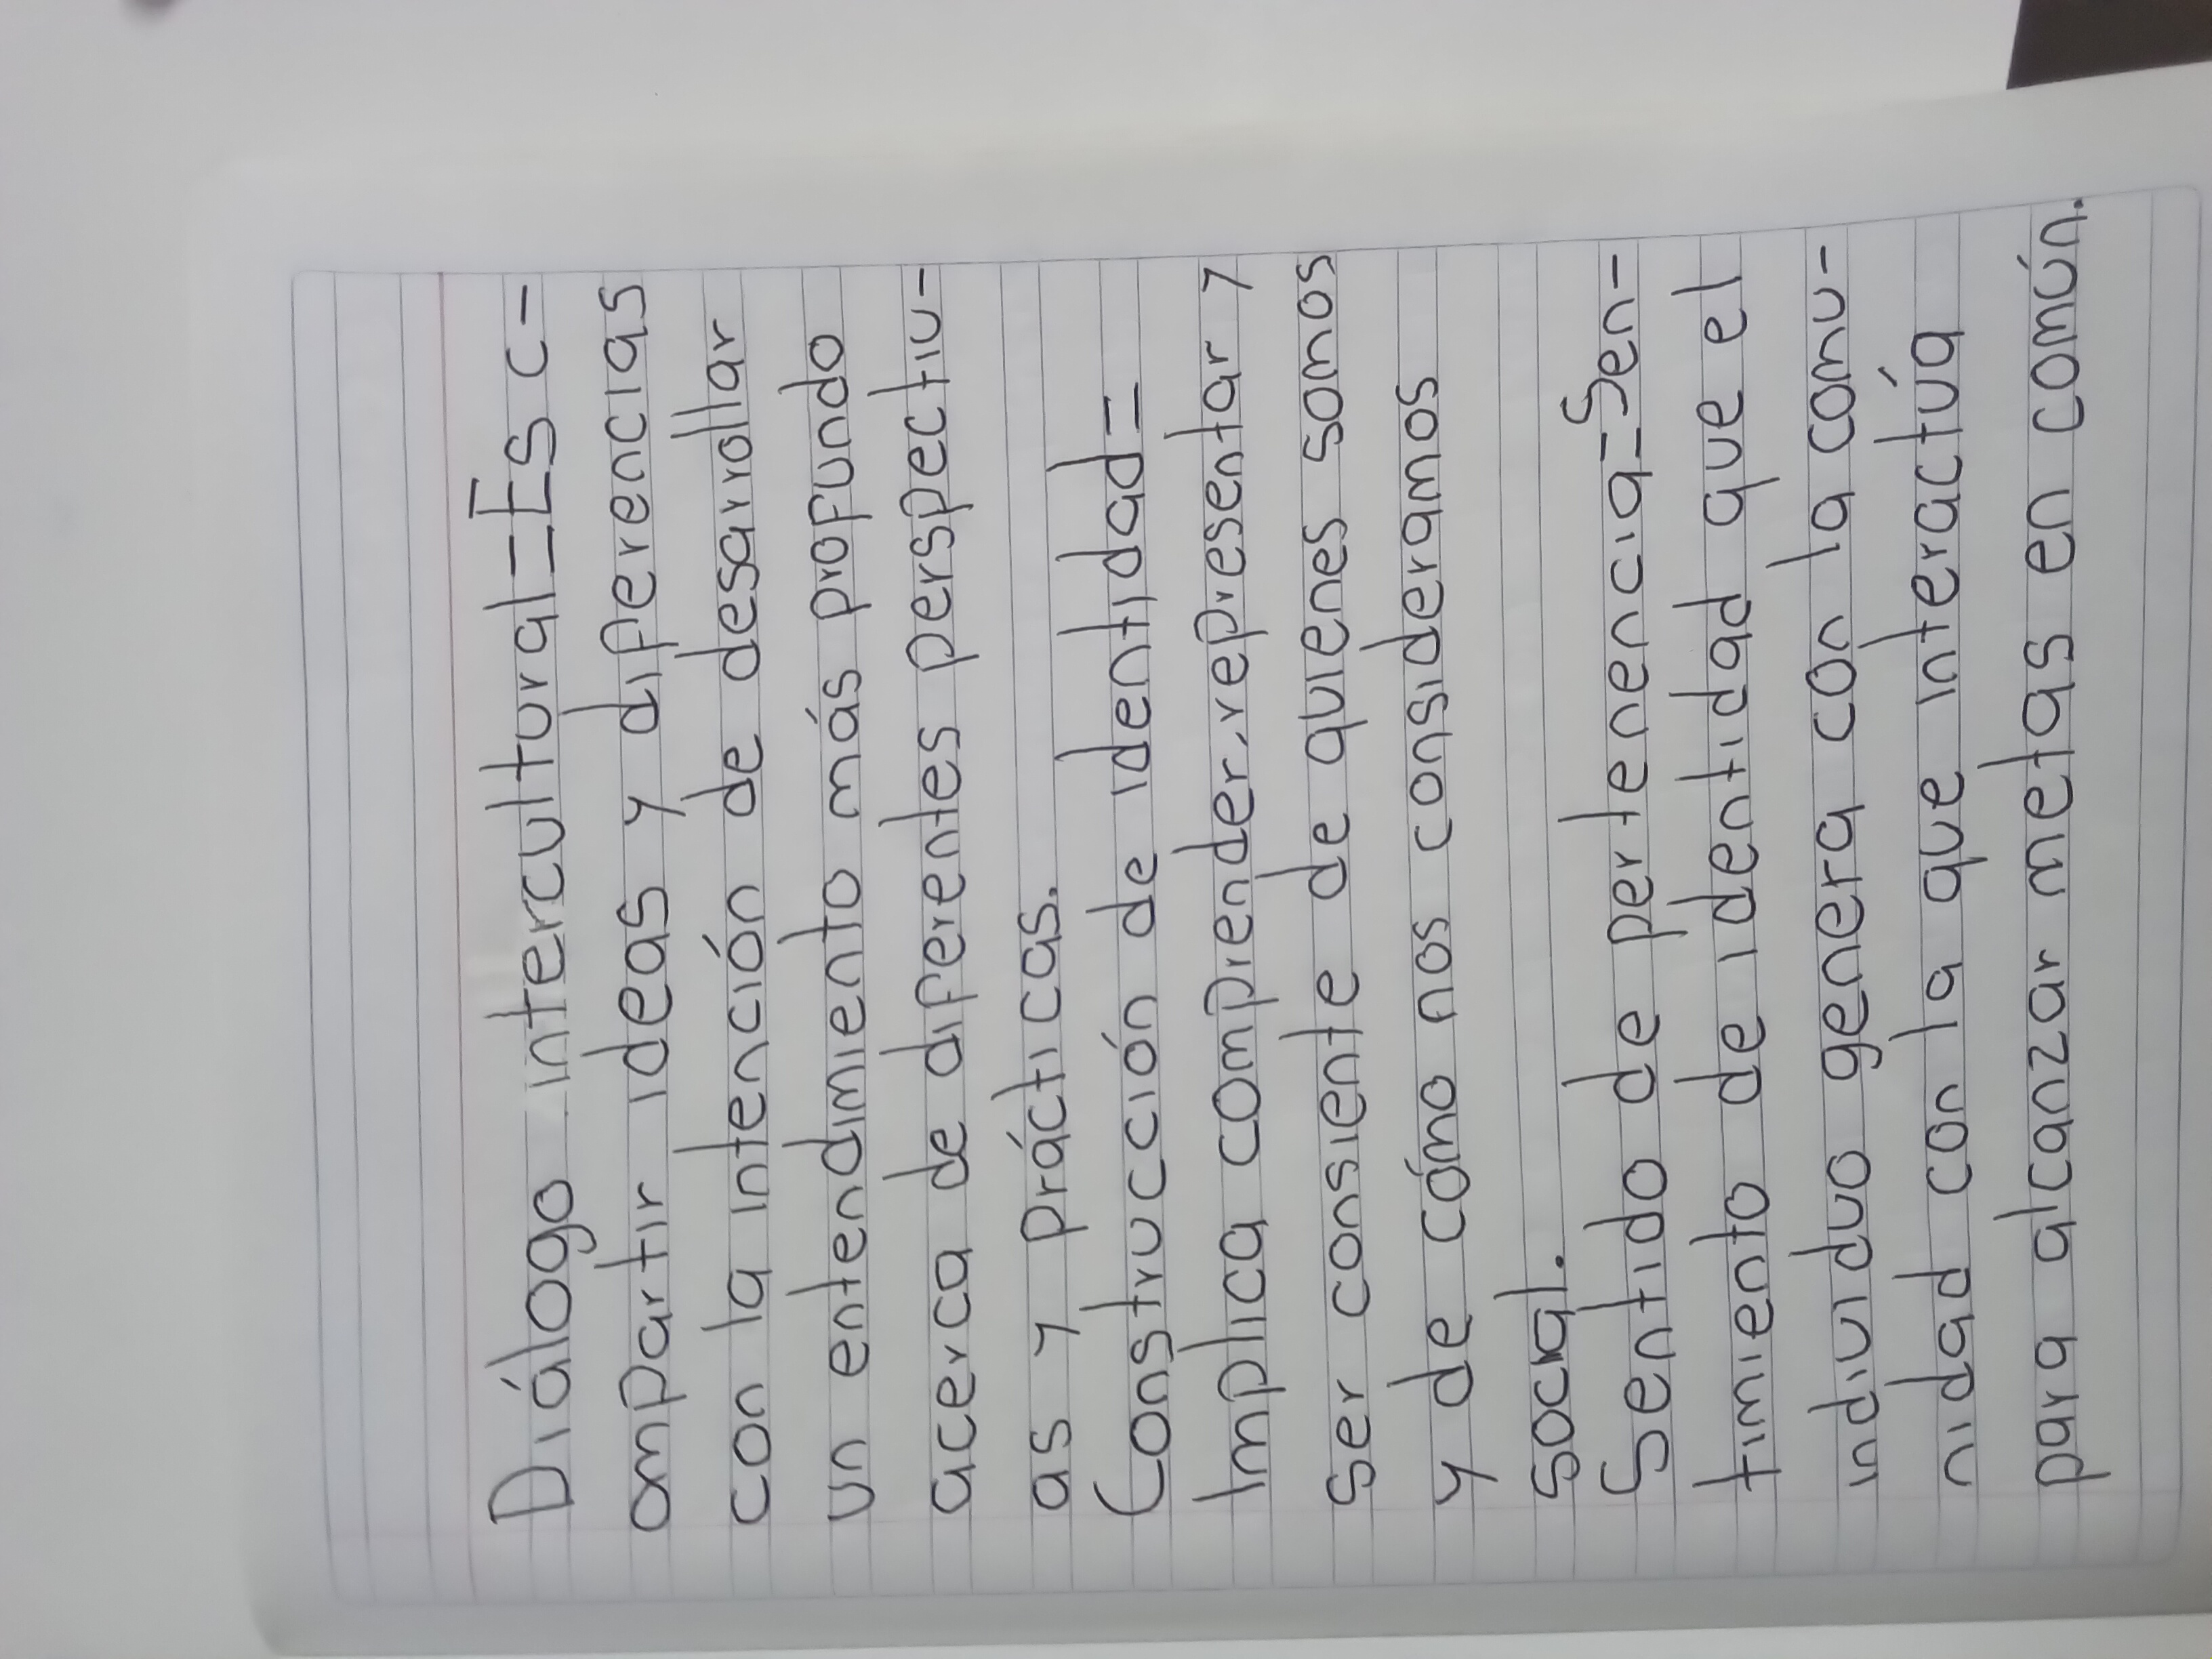 Diálogo intercultural=Es c-
ompartir ideas y diferencias
con la intención de desarrollar
un entendimiento más profundo
acerca de diferentes perspectiv-
as y prácticas.
Construcción de identidad=
Implica comprender, representar y
ser consiente de quienes somos
y de cómo nos consideramos
social.
Sentido de pertenencia=Sen-
timiento de identidad que el
individuo genera con la comu-
nidad con la que interactúa
para alcanzar metas en común.